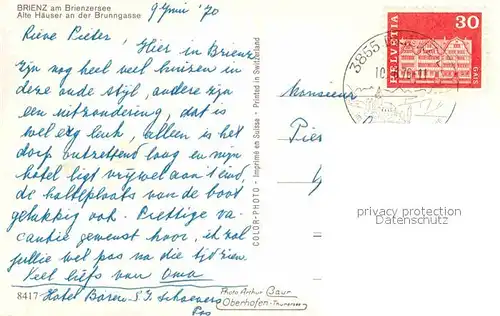 BRIENZ am Brienzersee
Alte Häuser an der Brunngasse
9 Juni '70
Lieve Pieter! Hier in Brienz
zijn nog heel veel huizen in
deze oude stijl, andere zijn
een uitzondering, dat is
wel erg leuk, alleen is het
dorp ontzettend lang en mijn
hotel ligt vrijwel aan 't eind,
de halteplaats van de boot
gelukkig ook. Prettige va-
cantie gewenst hoor, ik zal
jullie wel pas na die tijd zien.
Veel liefs van Oma
8417 Hotel Baren
COLOR-PHOTO - Imprimé en Suisse - Printed in Switzerland
Photo Arthur Baur
Oberhofen - Thunersee
HELVETIA 30
GAIS
3855
Monsieur
privacy protection
Datenschutz